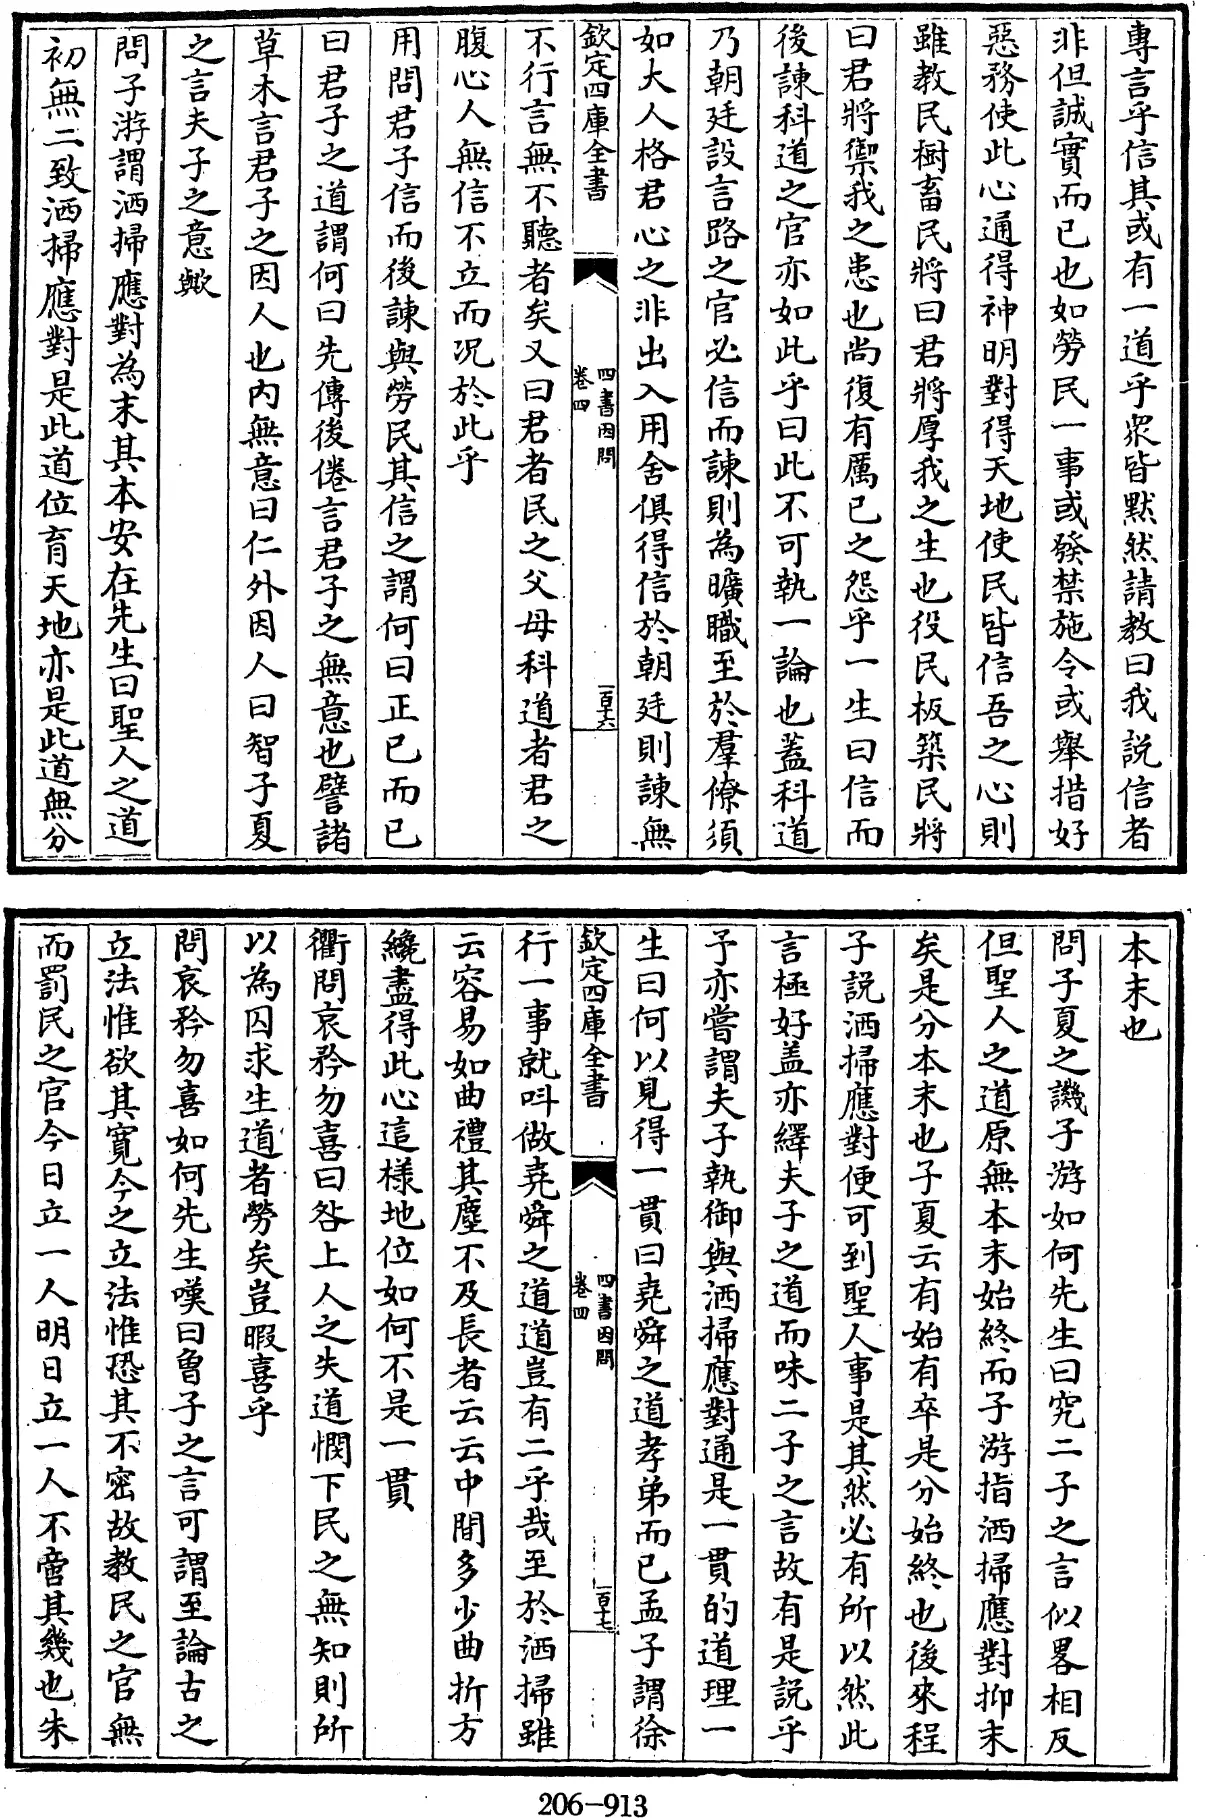 專言乎信其或有一道乎衆皆默然請教曰我説信者
非但誠實而已也如勞民一事或發禁施令或舉措好
惡務使此心通得神明對得天地使民皆信吾之心則
雖教民樹畜民將曰君將厚我之生也役民板築民將
曰君將禦我之患也尚復有厲已之怨乎一生曰信而
後諫科道之官亦如此乎曰此不可執一論也蓋科道
乃朝廷設言路之官必信而諫則為曠職至於羣僚須
如大人格君心之非出入用舍俱得信於朝廷則諫無
欽定四庫全書
四書因問
卷四
一百十六
不行言無不聽者矣又曰君者民之父母科道者君之
腹心人無信不立而况於此乎
用問君子信而後諫與勞民其信之謂何曰正已而已
曰君子之道謂何曰先傳後倦言君子之無意也譬諸
草木言君子之因人也内無意曰仁外因人曰智子夏
之言夫子之意歟
問子游謂洒掃應對為末其本安在先生曰聖人之道
初無二致洒掃應對是此道位育天地亦是此道無分
本末也
問子夏之譏子游如何先生曰究二子之言似畧相反
但聖人之道原無本末始終而子游指洒掃應對抑末
矣是分本末也子夏云有始有卒是分始終也後來程
子説洒掃應對便可到聖人事是其然必有所以然此
言極好盖亦繹夫子之道而味二子之言故有是説乎
予亦嘗謂夫子執御與洒掃應對通是一貫的道理一
生曰何以見得一貫曰堯舜之道孝弟而已孟子謂徐
欽定四庫全書
四書因問
卷四
一百十七
行一事就呌做堯舜之道道豈有二乎哉至於洒掃雖
云容易如曲禮其塵不及長者云云中間多少曲折方
纔盡得此心這様地位如何不是一貫
衢問哀矜勿喜曰咎上人之失道憫下民之無知則所
以為囚求生道者勞矣豈暇喜乎
問哀矜勿喜如何先生嘆曰曾子之言可謂至論古之
立法惟欲其寛今之立法惟恐其不密故教民之官無
而罰民之官今日立一人明日立一人不啻其幾也朱
206-913